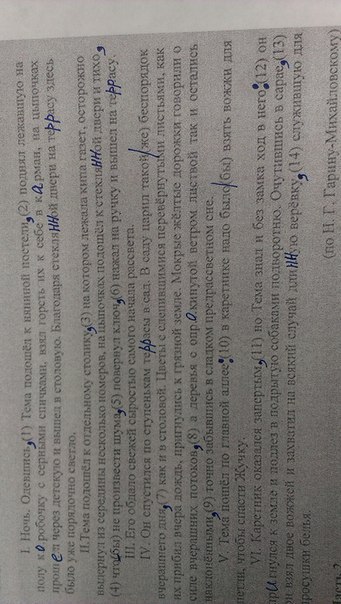 I. Ночь. Одевшись,(1) Тема подошёл к няниной постели,(2) поднял лежавшую на
полу коробочку с серными спичками, взял горсть их к себе в карман, на цыпочках
прошёл через детскую и вышел в столовую. Благодаря стеклянной двери на террасу здесь
было уже порядочно светло.
II. Тема подошёл к отдельному столику,(3) на котором лежала кипа газет, осторожно
выдернул из середины несколько номеров, на цыпочках подошёл к стеклянной двери и тихо,
(4) чтобы) не произвести шума,(5) повернул ключ,(6) нажал на ручку и вышел на террасу.
III. Его обдало свежей сыростью самого начала рассвета.
IV. Он спустился по ступенькам террасы в сад. В саду царил такой/же) беспорядок
вчерашнего дня,(7) как и в столовой. Цветы с слепившимися перевёрнутыми листьями, как
их прибил вчера дождь, пригнулись к грязной земле. Мокрые жёлтые дорожки говорили о
силе вчерашних потоков,(8) а деревья с опрокинутой ветром листвой так и остались
наклонёнными,(9) точно забывшись в сладком предрассветном сне.
V. Тема пошёл по главной аллее:(10) в каретнике надо было/бы) взять вожжи для
петли, чтобы спасти Жучку.
VI. Каретник оказался запертым,(11) но Тема знал и без замка ход в него:(12) он
пригнулся к земле и подлез в подрытую собаками подворотню. Очутившись в сарае,(13)
он взял двое вожжей и захватил на всякий случай длинную верёвку,(14) служившую для
просушки белья.
(по Н. Г. Гарину-Михайловскому)